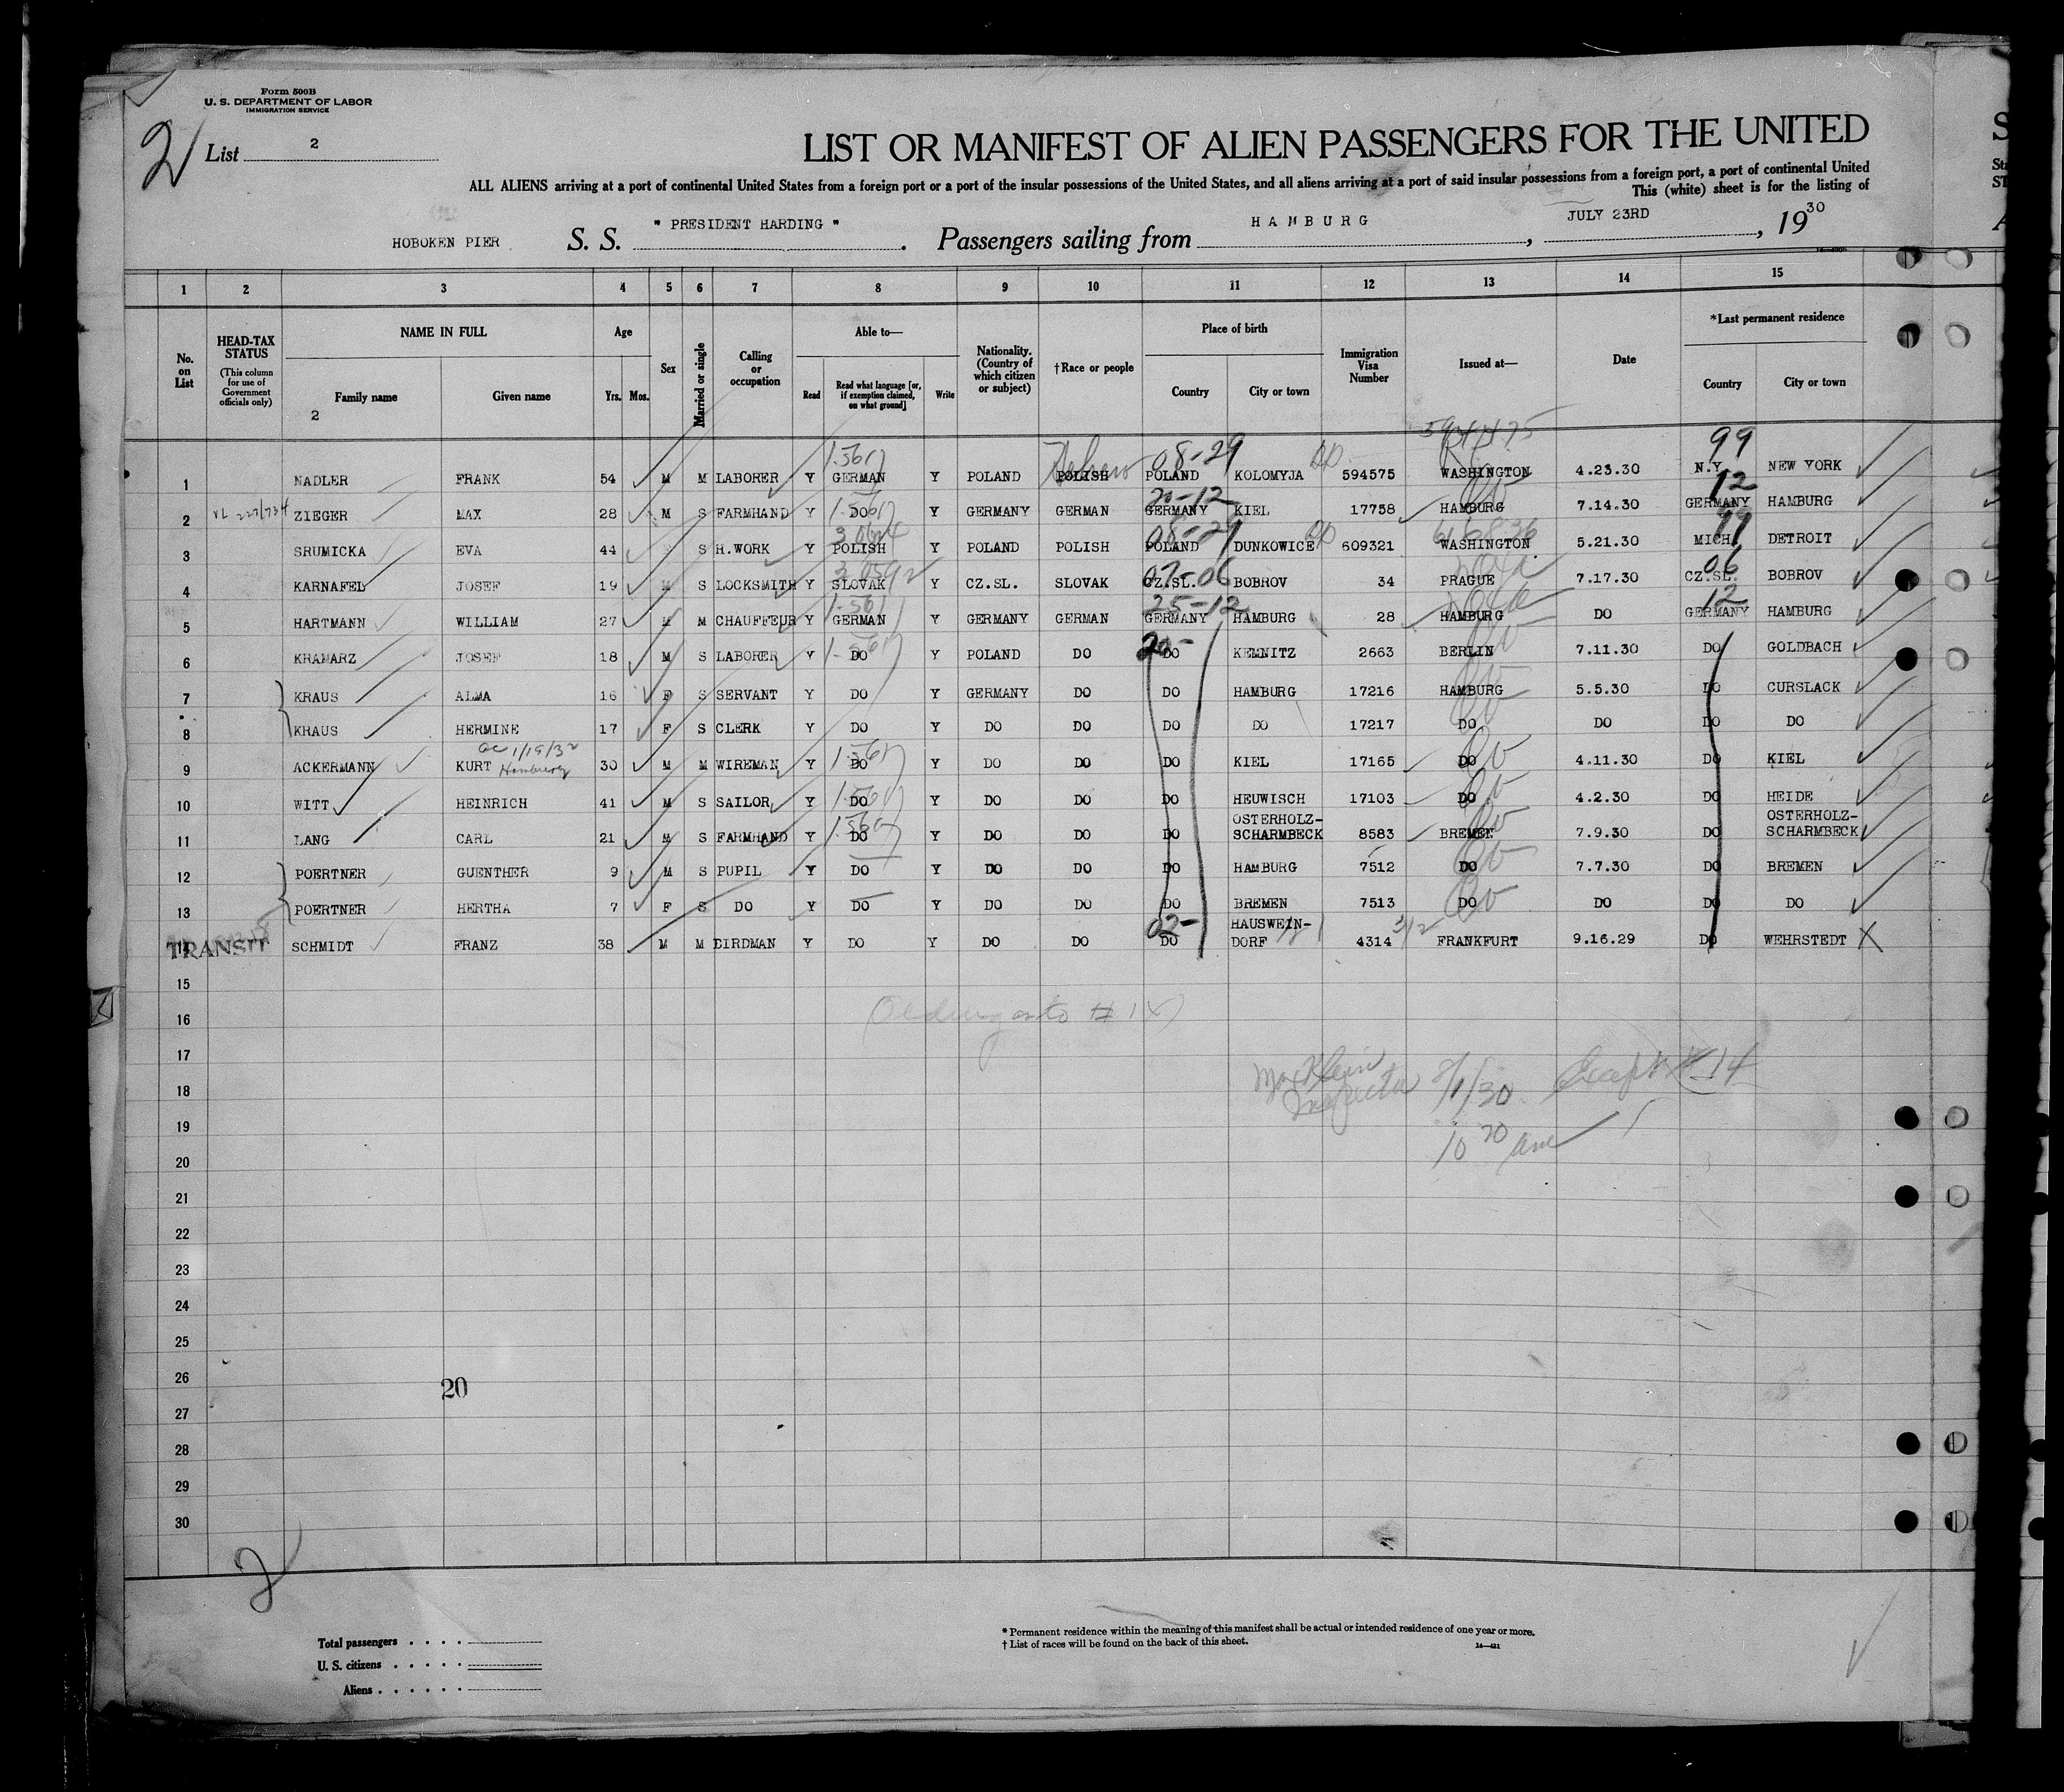 Form 500B
U. S. DEPARTMENT OF LABOR
IMMIGRATION SERVICE
2
List 2
LIST OR MANIFEST OF ALIEN PASSENGERS FOR THE UNITED
ALL ALIENS arriving at a port of continental United States from a foreign port or a port of the insular possessions of the United States, and all aliens arriving at a port of said insular possessions from a foreign port, a port of continental United
This (white) sheet is for the listing of
HOBOKEN PIER S. S. "PRESIDENT HARDING". Passengers sailing from HAMBURG, JULY 23RD, 1930
1 2 3 4 5 6 7 8 9 10 11 12 13 14 15
No. on List
HEAD-TAX STATUS
(This column for use of Government officials only)
NAME IN FULL
Family name Given name
2
Age
Yrs. Mos.
Sex
Married or single
Calling or occupation
Able to—
Read Read what language [or, if exemption claimed, on what ground] Write
Nationality. (Country of which citizen or subject)
†Race or people
Place of birth
Country City or town
Immigration Visa Number
Issued at—
Date
*Last permanent residence
Country City or town
Hebrew 08-29 99
1 NADLER FRANK 54 M M LABORER Y GERMAN Y POLAND POLISH POLAND KOLOMYJA 594575 WASHINGTON 4.23.30 N.Y. NEW YORK
20-12 12
2 ZIEGER MAX 28 M S FARMHAND Y DO Y GERMANY GERMAN GERMANY KIEL 17758 HAMBURG 7.14.30 GERMANY HAMBURG
08-29 99
3 SRUMICKA EVA 44 S H.WORK Y POLISH Y POLAND POLISH POLAND DUNKOWICE 609321 WASHINGTON 5.21.30 MICH. DETROIT
07-06 06
4 KARNAFEL JOSEF 19 M S LOCKSMITH Y SLOVAK Y CZ.SL. SLOVAK CZ.SL. BOBROV 34 PRAGUE 7.17.30 CZ.SL. BOBROV
25-12 12
5 HARTMANN WILLIAM 27 M M CHAUFFEUR Y GERMAN Y GERMANY GERMAN GERMANY HAMBURG 28 HAMBURG DO GERMANY HAMBURG
6 KRAMARZ JOSEF 18 M S LABORER Y DO Y POLAND DO DO KEMNITZ 2663 BERLIN 7.11.30 DO GOLDBACH
7 KRAUS ALMA 16 F S SERVANT Y DO Y GERMANY DO DO HAMBURG 17216 HAMBURG 5.5.30 DO CURSLACK
8 KRAUS HERMINE 17 F S CLERK Y DO Y DO DO DO DO 17217 DO DO DO DO
1/19/32
Hamburg
9 ACKERMANN KURT 30 M M WIREMAN Y DO Y DO DO DO KIEL 17165 DO 4.11.30 DO KIEL
10 WITT HEINRICH 41 M S SAILOR Y DO Y DO DO DO HEUWISCH 17103 DO 4.2.30 DO HEIDE
11 LANG CARL 21 M S FARMHAND Y DO Y DO DO DO OSTERHOLZ-SCHARMBECK 8583 BREMEN 7.9.30 DO OSTERHOLZ-SCHARMBECK
12 POERTNER GUENTHER 9 M S PUPIL Y DO Y DO DO DO HAMBURG 7512 DO 7.7.30 DO BREMEN
13 POERTNER HERTHA 7 F S DO Y DO Y DO DO DO BREMEN 7513 DO DO DO DO
02-
TRANSIT SCHMIDT FRANZ 38 M M BIRDMAN Y DO Y DO DO DO HAUSWEIN-DORF 4314 FRANKFURT 9.16.29 DO WEHRSTEDT X
15
16
17
18
19
20
21
22
23
24
25
26
27
28
29
30
Inspector 8/1/30 Except #14
10 30 am
20
2
Total passengers
U. S. citizens
Aliens
* Permanent residence within the meaning of this manifest shall be actual or intended residence of one year or more.
† List of races will be found on the back of this sheet.